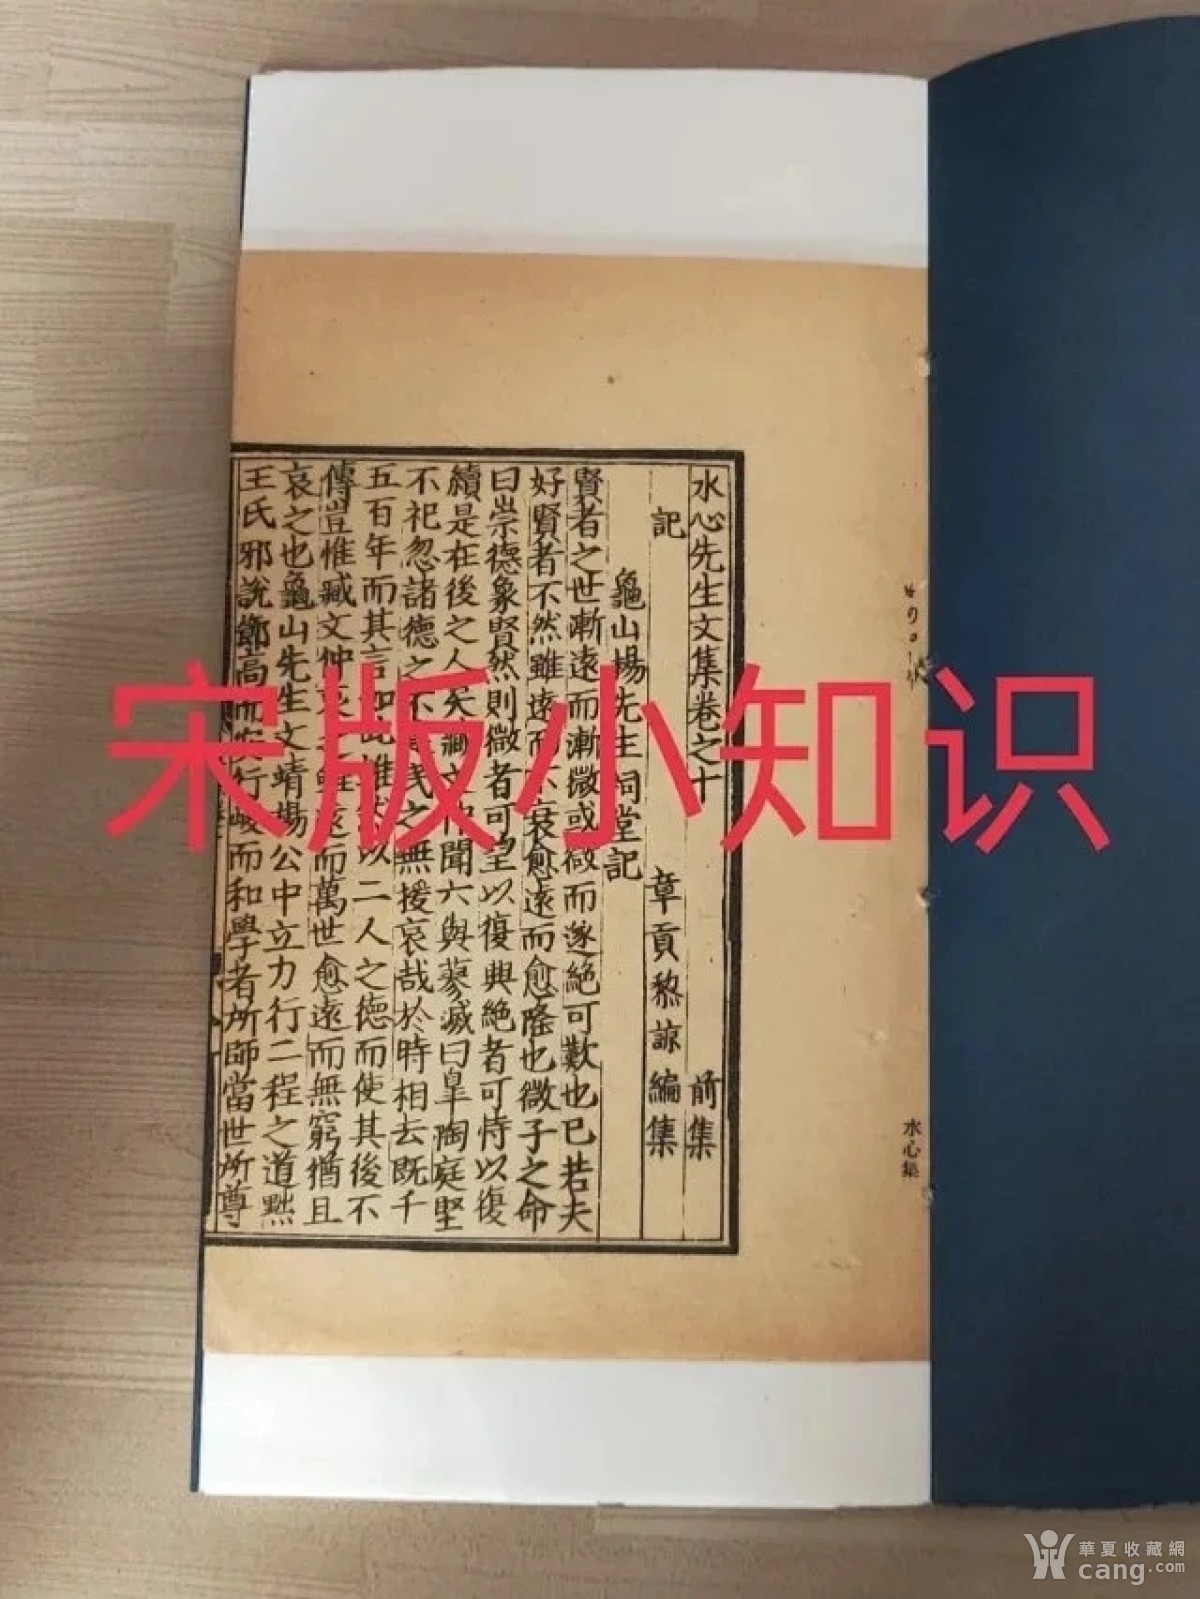 宋版小知识
水心先生文集卷之十 前集
記 章貢黎諒編集
龜山楊先生祠堂記
賢者之世漸遠而漸微或微而遂絶可歎也已若夫
好賢者不然雖遠而不衰愈遠而愈隆也微子之命
曰崇德象賢然則微者可望以復興絶者可恃以復
續是在後之人矣臧文仲聞六與蓼滅曰臯陶庭堅
不祀忽諸德之不建民之無援哀哉於時相去既千
五百年而其言如此惟 以二人之德而使其後不
傳豈惟臧文仲哀之雖遠而萬世愈遠而無窮猶且
哀之也龜山先生文靖楊公中立力行二程之道黜
王氏邪說節高而 行峻而和學者所師當世所尊
水心集
華夏收藏網
cang.com